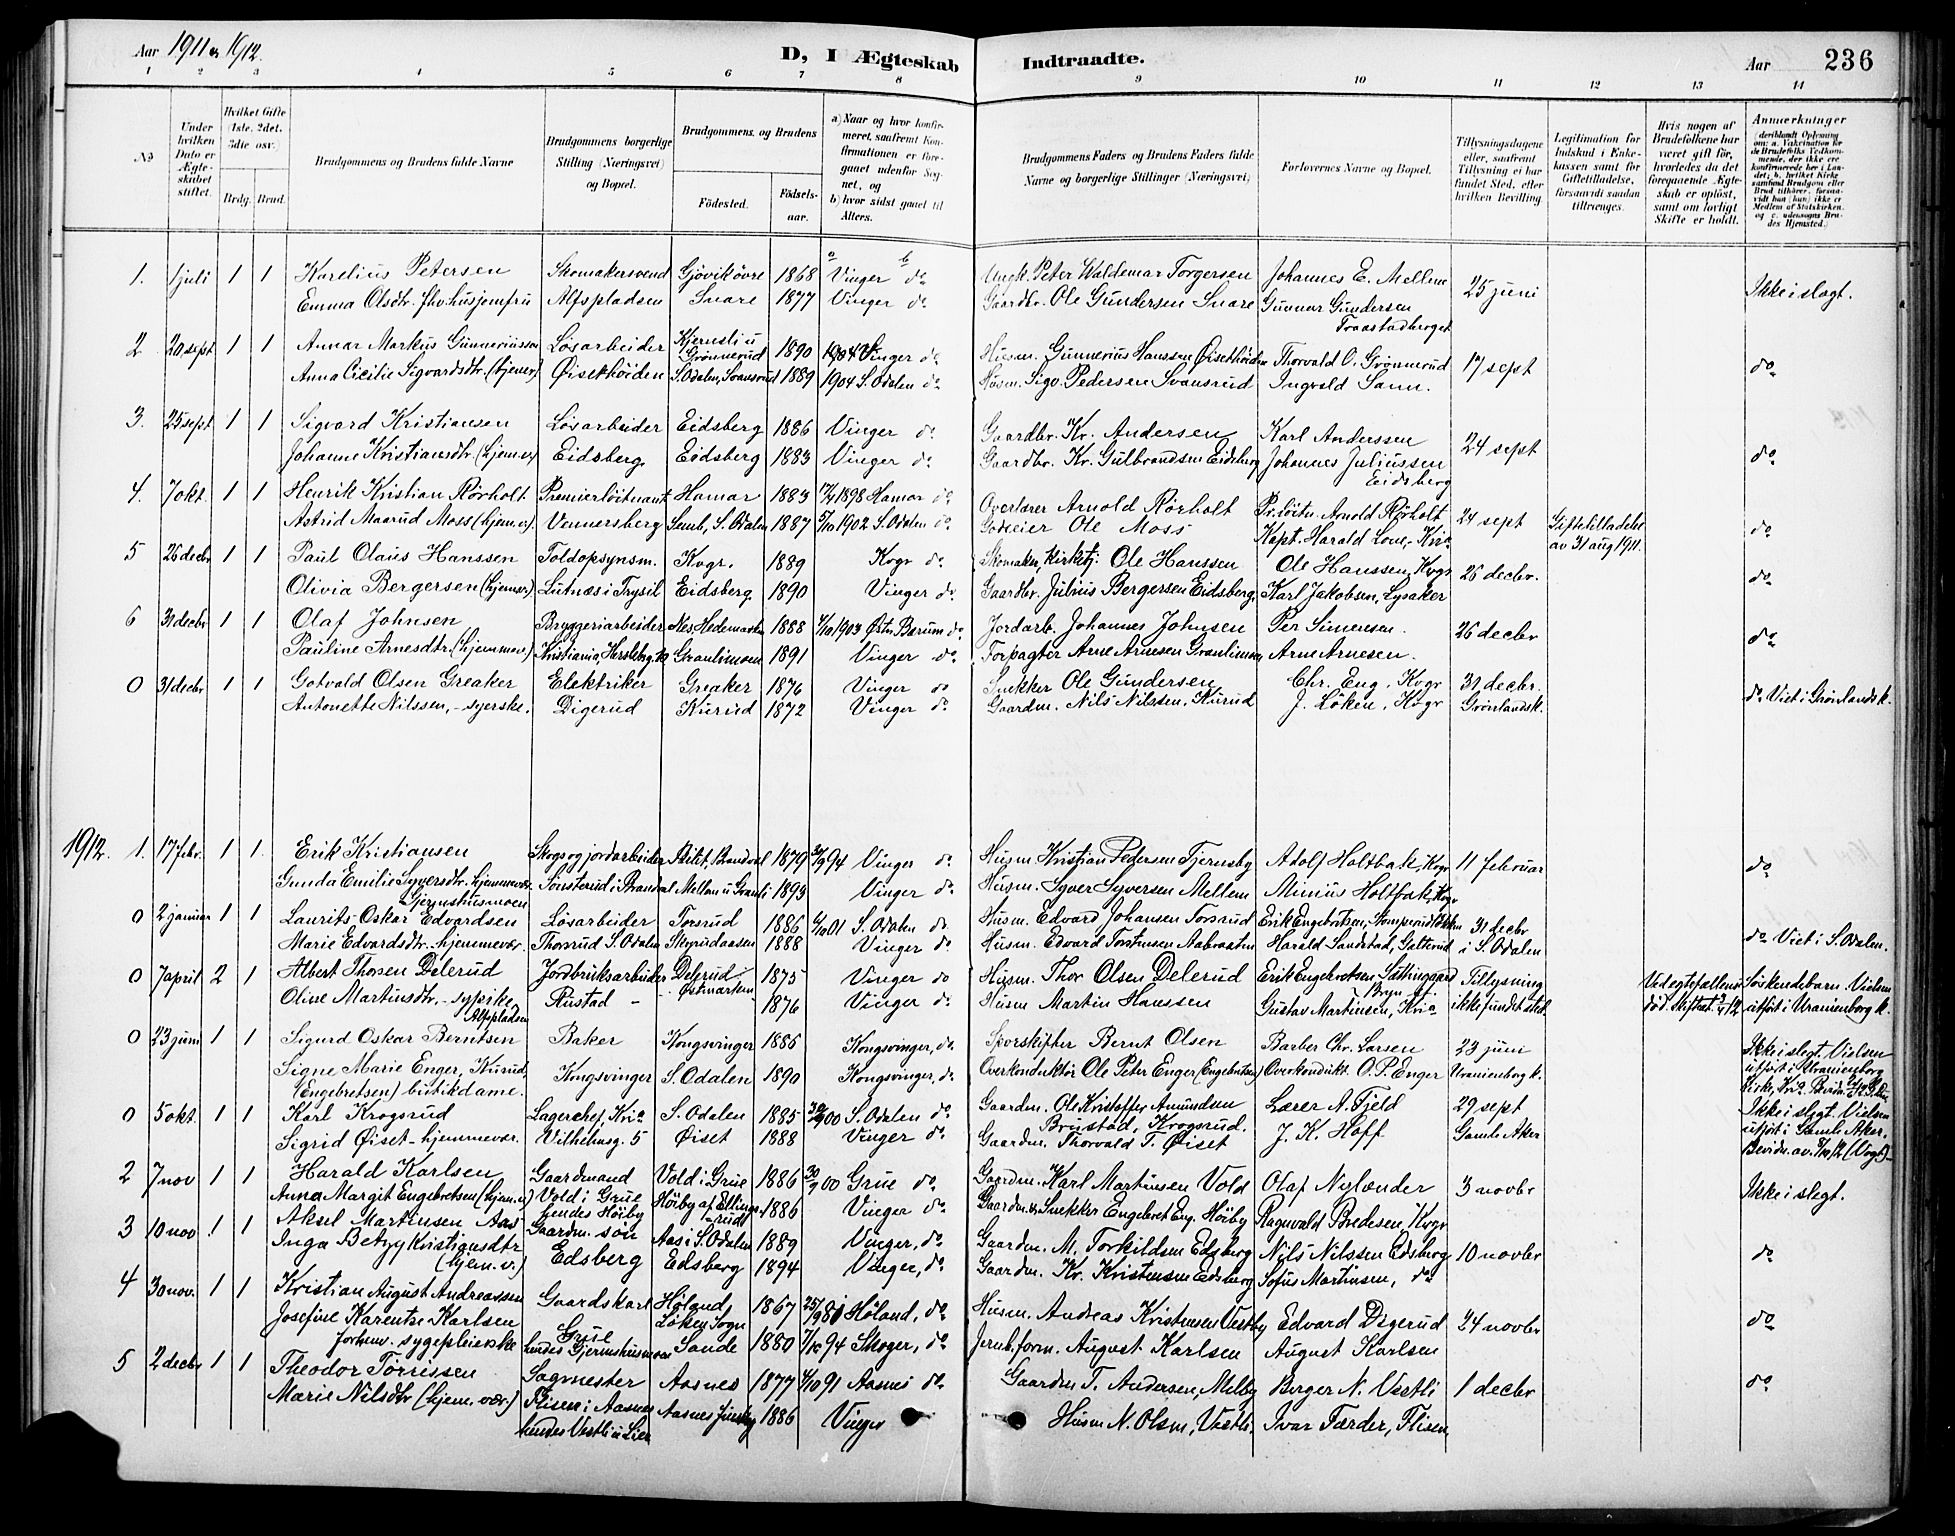 Aar 1911 og 1912.
D, I Ægteskab Indtraadte.
Aar 236
1 2 3 4 5 6 7 8 9 10 11 12 13 14
No
Under hvilken Dato er Ægteskabet stiftet.
Hvilket Gifte (1ste, 2det, 3die osv.)
Brdg. Brud.
Brudgommens og Brudens fulde Navne
Brudgommens borgerlige Stilling (Næringsvei) og Bopæl.
Brudgommens og Brudens
Fødested. Fødselsaar.
a) Naar og hvor konfirmeret, saafremt Konfirmationen er foregaaet udenfor Sognet, og
b) hvor sidst gaaet til Alters.
Brudgommens Faders og Brudens Faders fulde Navne og borgerlige Stillinger (Næringsvei)
Forlovernes Navne og Bopæl.
Tillysningsdagene eller, saafremt Tillysning ei har fundet Sted, efter hvilken Bevilling
Legitimation for Indskud i Enkekassen samt for Giftetilladelse, forsaavidt saadan tiltrænges.
Hvis nogen af Brudefolkene har været gift før, hvorledes da det foregaaende Ægteskab er opløst, samt om lovligt Skifte er holdt.
Anmerkninger
1. 1 juli 1 1 Karelius Petersen Skomakersvend Gjøvik øvre 1868 Vinger do Ungk. Peter Waldemar Torgersen Johannes E. Mellem 25 juni Ikke i slegt.
Emma Olsdtr. fhv. husjomfru Alfspladsen Snare 1877 Vinger do Gaardbr. Ole Gundersen Snare Gunnar Gundersen Traastadberget
2 20 sept 1 1 Annar Markus Gunneriussen Løsarbeider Kjernsli u Grønnerud 1890 1904 Vinger do Husm. Gunnerius Hanssen Øisethøiden Thorvald O. Grønnerud 17 sept do
Anna Cicilie Sigvardsdtr. (hjemv) Øisethøiden S. Odalen, Svansrud 1889 1904 S. Odalen do Husm. Sigv. Pedersen Svansrud Ingvald Sann.
3. 25 sept 1 1 Sigvard Kristiansen Løsarbeider Eidsberg 1886 Vinger do Gaardbr. Kr. Andersen Karl Anderssen 24 sept do
Johanne Kristiansdtr. (hjem.v) Eidsberg. Eidsberg 1883 Vinger do Gaardbr. Kr. Gulbrandsen Eidsberg Johannes Juliussen Eidsberg
4. 7 okt. 1 1 Henrik Kristian Rørholt Premierløitnant Hamar 1883 17/4 1898 Hamar do Overlærer Arnold Rørholt Pr. løitn. Arnold Rørholt 24 sept Giftetilladelse av 31 aug 1911. do
Astrid Maarud Moss (hjem.v). Vennersberg Semb, S. Odalen 1887 5/10 1902 S. Odalen do Godseier Ole Moss Kapt. Harald Love, Kria
5 26 decbr 1 1 Paul Olaus Hanssen Toldopsynsm. Kvgr. 1889 Kvgr do Skomaker, kirketj. Ole Hanssen Ole Hanssen, Kvgr 26 decbr. do
Olivia Bergersen (hjemv) Lutnæs i Trysil Eidsberg. 1890 Vinger do Gaardbr. Julius Bergersen Eidsberg. Karl Jakobsen, Lysaker
6 31 decbr 1 1 Olaf Johnsen Bryggeriarbeider Nes, Hedemarken 1888 4/10 1903 Østre Bærum do Jordarb. Johannes Johnsen Per Simensen. 26 decbr do
Pauline Arnesdtr. (hjemmev.) Kristiania, Herslebg. Granlimoen 1891 Vinger do Forpagter Arne Arnesen Granlimoen Arne Arnesen.
0 31 decbr 1 1 Gotvald Olsen Greaker Elektriker Greaker 1876 Vinger do Snekker Ole Gundersen Chr. Eng, Kvgr 31 decbr. do Viet i Grønlands k.
Antonette Nilssen, - syerske. Digerud Kurud 1872 Vinger do Gaardm. Nils Nilssen, Kurud J. Løken, Kvgr Grønlandsk.
1912. 1. 17 febr. 1 1 Erik Kristiansen Skogs og jordarbeider Blilet, Brandval 1879 94 Vinger do Husm Kristian Pedersen Tjernsby Adolf Holtbak, Kvgr 11 februar do
Gunda Emilie Syversdtr. hjemmevær. Gjermshusmoen Tønsterud i Brandval Mellem u Granli 1893 Vinger do Husm. Syver Syversen Mellem Minius Holtbak, Kvgr
0 2 januar 1 1 Laurits Oskar Edvardsen Løsarbeider Torsrud 1886 01 S. Odalen do Husm. Edvard Johansen Torsrud Erik Engebretsen, 31 decbr do Viet i S. Odalen.
Marie Edvardsdtr. hjemmevær. Thorsrud S. Odalen Skyrudaasen 1888 Vinger do Husm. Edvard Torstensen Aabraaten Harald Sandstad, Galterud i S. Odalen
0 7 april 2 1 Albert Thorsen Delerud Jordbruksarbeider Delerud Østmarken 1875 Vinger do Husm. Thor Olsen Delerud Erik Engebretsen Sættingaard Tillysning Ved egtefællens død. Skifteat. Søskendebarn. Vielsen
Oline Martinsdtr. - sypike. Alfspladsen Rustad 1876 Vinger do Husm Martin Hanssen Gustav Martinsen, Kria ikke fundet sted utført i Uranienborg k.
0 23 juni 1 1 Sigurd Oskar Berntsen Baker Kongsvinger 1886 Kongsvinger, do Sporskifter Bernt Olsen Barber Chr. Larsen 23 juni Ikke i slegt. Vielsen utført i Uranienborg kirke, Kria.
Signe Marie Enger, Kurud, (Engebretsen) butikdame. Kongsvinger S. Odalen 1890 Kongsvinger, do Overkonduktør Ole Peter Enger (Engebretsen) Overkondukt. O. P. Enger Uranienborg k.
0 5 okt. 1 1 Karl Krogsrud Lagerchef, Kria S. Odalen 1885 00 S. Odalen do Gaardm. Ole Kristoffer Amundsen Brustad, Krogsrud. Lærer A. Fjeld 29 sept Ikke i slegt. Vielsen utført i Gamle Aker.
Sigrid Øiset - hjemmevær. Vilhelmsg. 5 Øiset 1888 Vinger do Gaardm. Thorvald T. Øiset J. K. Hoff Gamle Aker Bevidn. av 8/10 12 (Vogt)
2 7 nov 1 1 Harald Karlsen Gaardmand Vold i Grue 1886 00 Grue do Gaardm. Karl Martinsen Vold Olaf Nylænder 3 novbr Ikke i slegt.
Anna Margit Engebretsen (hjem.v) Vold i Grue hendes Høiby Høiby af Ellingsrud 1886 Vinger do Gaardm. & Snekker Engebret Eng. Høiby Ragnvald Bredesen, Kvgr
3 10 nov 1 1 Aksel Martinsen Aas Gaardm. søn Aas i S. Odalen 1889 Vinger, do Gaardm. M. Torkildsen Edsberg Nils Nilssen Edsberg 10 novbr do
Inga Betzy Kristiansdtr (hjem.v.) Edsberg Edsberg 1894 Vinger, do Gaardm. Kr. Kristensen Eidsberg Sofus Martinsen, do
4 30 nov. 1 1 Kristian August Andreassen Gaardskarl Høland, Løken Sogn 1867 25/9 81 Høland, do Husm. Andreas Kristensen Vestby Edvard Digerud 24 novbr do
Josefine Karentse Karlsen forhenv. sygepleierske Grue hendes Gjermshusmoen Sande 1880 94 Skoger, do Jernb. form. August Karlsen August Karlsen
5 2 decbr 1 1 Theodor Tørrissen Sagmester Aasnes 1877 91 Aasnes do Gaardm T. Andersen, Melby Berger N. Vestli 1 decbr do
Marie Nilsdtr (hjem. vær.) Flisen i Aasnes hendes Vestli u Lier Aasnes 1886 Vinger Husm N. Olsen, Vestli. Ivar Færder, Flisen